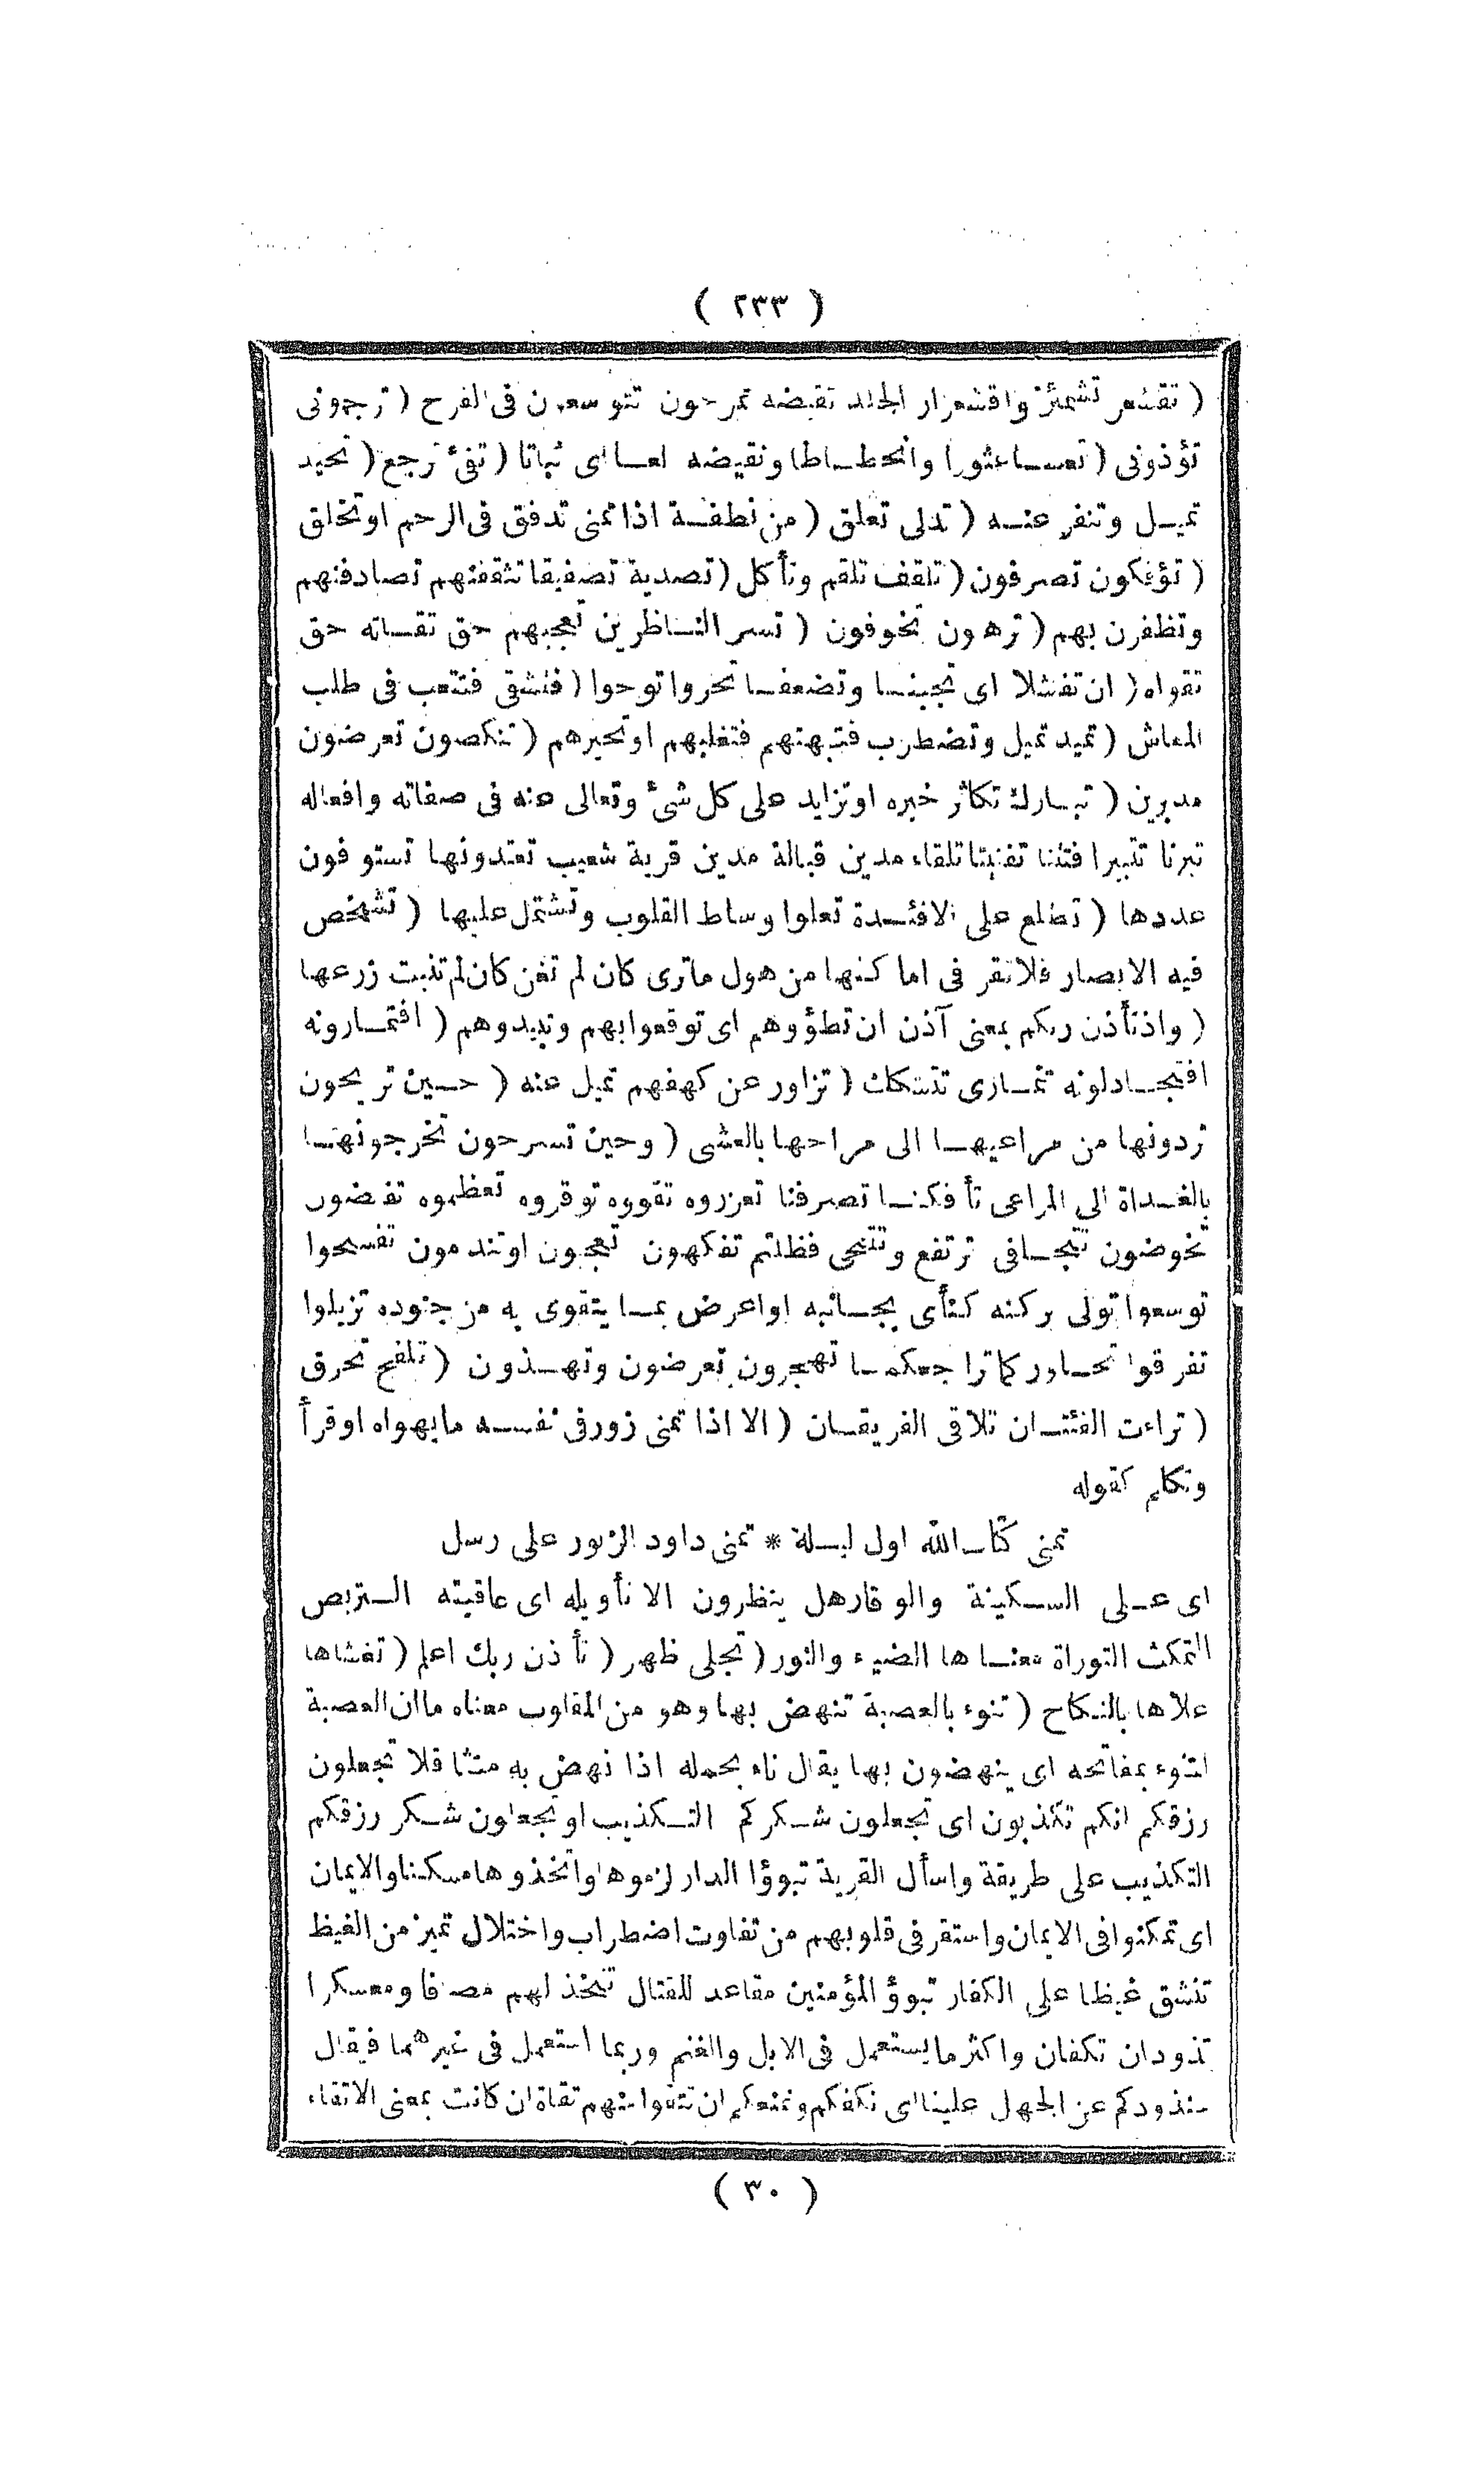 ( ٢٣٣ )
( تقشعر تشمئز واقشعرار الجلد تقبضه تمرحون تتوسعون فى الفرح ( ترجمونى
تؤذونى ( تعسا عثورا وانحطاطا ونقيضه لعا اى ثباتا ( تفئ ترجع ( تحيد
تميل وتنفر عنه ( تدلى تعلق ( من نطفة اذا تمنى تدفق فى الرحم او تخلق
( تؤفكون تصرفون ( تلقف تلقم وتأكل ( تصدية تصفيقا تثقفنهم تصادفنهم
وتظفرن بهم ( ترهبون تخوفون ( تسر الناظرين تعجبهم حق تقاته حق
تقواه ( ان تفشلا اى تجبنا وتضعفا تحروا توخوا ( فتشقى فتتعب فى طلب
المعاش ( تميد تميل وتضطرب فتبهتهم فتغلبهم او تحيرهم ( تنكصون تعرضون
مدبرين ( تبارك تكاثر خيره او تزايد على كل شئ وتعالى عنه فى صفاته وافعاله
تبرنا تتبيرا فتتنا تفتيتا تلقاء مدين قبالة مدين قرية شعيب تعتدونها تستوفون
عددها ( تطلع على الافئدة تعلوا وساط القلوب وتشتمل عليها ( تشخص
فيه الابصار فلا تقر فى اماكنها من هول ماترى كان لم تغن كان لم تنبت زرعها
( واذتأذن ربكم بمعنى آذن ان تطؤوهم اى توقعوا بهم وتبيدوهم ( افتمارونه
افتجادلونه تتمارى تتشكك ( تزاور عن كهفهم تميل عنه ( حين تريحون
تردونها من مراعيها الى مراحها بالعشى ( وحين تسرحون تخرجونها
بالغداة الى المراعى تأفكنا تصرفنا تعزروه تقووه توقروه تعظموه تفيضون
تخوضون تتجافى ترتفع وتتنحى فظلتم تفكهون تعجبون او تندمون تفسحوا
توسعوا تولى بركنه كنأى بجانبه او اعرض بما يتقوى به من جنوده تزيلوا
تفرقوا تحاوركما تراجعكما تهجرون تعرضون وتهذون ( تلفح تحرق
( تراءت الفئتان تلاقى الفريقان ( الا اذا تمنى زور فى نفسه مايهواه او قرأ
وتكلم كقوله
تمنى كتاب الله اول ليلة * تمنى داود الزبور على رسل
اى على السكينة والوقار هل ينظرون الا تأويله اى عاقبته التربص
التمكث التوراة معناها الضياء والنور ( تجلى ظهر ( تأذن ربك اعلم ( تغشاها
علاها بالنكاح ( تنوء بالعصبة تنهض بها وهو من المقلوب معناه ماان العصبة
لتنوء بمفاتحه اى ينهضون بها يقال ناء بحمله اذا نهض به متثاقلا تجعلون
رزقكم انكم تكذبون اى تجعلون شكركم التكذيب او تجعلون شكر رزقكم
التكذيب على طريقة واسأل القرية تبوؤا الدار لزموها واتخذوها مسكنا والايمان
اى تمكنوا فى الايمان واستقر فى قلوبهم من تفاوت اضطراب واختلال تميز من الغيظ
تنشق غيظا على الكفار تبوؤ المؤمنين مقاعد للقتال تتخذ لهم مصافا ومعسكرا
تذودان تكفان واكثر مايستعمل فى الابل والغنم وربما استعمل فى غيرهما فيقال
سنذودكم عن الجهل علينا اى نكفكم ونمنعكم ان تتقوا منهم تقاة ان كانت بمعنى الاتقاء
( ٣٠ )